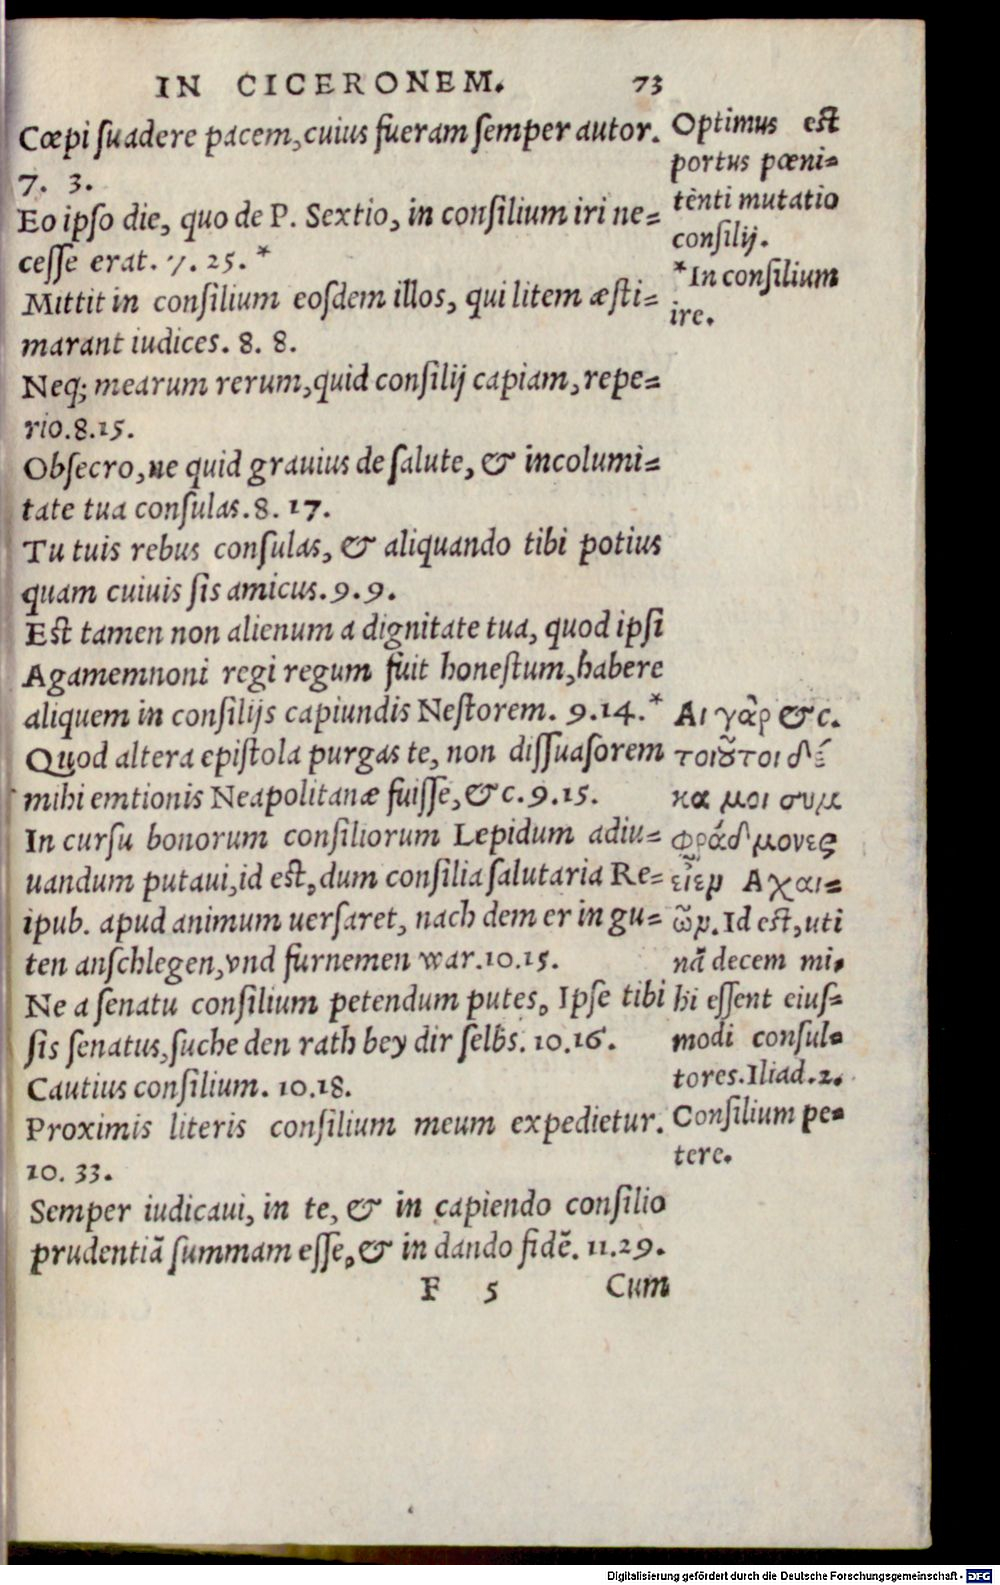 IN CICERONEM. 73
Cœpi ſuadere pacem, cuius fueram ſemper autor.
7. 3.
Eo ipſo die, quo de P. Sextio, in conſilium iri ne=
ceſſe erat. 7. 25. *
Mittit in conſilium eoſdem illos, qui litem æſti=
marant iudices. 8. 8.
Neq; mearum rerum, quid conſilij capiam, repe=
rio. 8. 15.
Obſecro, ne quid grauius de ſalute, & incolumi=
tate tua conſulas. 8. 17.
Tu tuis rebus conſulas, & aliquando tibi potius
quam cuiuis ſis amicus. 9. 9.
Eſt tamen non alienum a dignitate tua, quod ipſi
Agamemnoni regi regum fuit honeſtum, habere
aliquem in conſilijs capiundis Neſtorem. 9. 14. *
Quod altera epiſtola purgas te, non diſſuaſorem
mihi emtionis Neapolitanæ fuiſſe, &c. 9. 15.
In curſu bonorum conſiliorum Lepidum adiu=
uandum putaui, id eſt, dum conſilia ſalutaria Re=
ipub. apud animum uerſaret, nach dem er in gu=
ten anſchlegen, vnd furnemen war. 10. 15.
Ne a ſenatu conſilium petendum putes, Ipſe tibi
ſis ſenatus, ſuche den rath bey dir ſelbs. 10. 16.
Cautius conſilium. 10. 18.
Proximis literis conſilium meum expedietur.
10. 33.
Semper iudicaui, in te, & in capiendo conſilio
prudentiã ſummam eſſe, & in dando fidẽ. 11. 29.
F 5 Cum
Optimus eſt
portus pœni=
tenti mutatio
conſilij.
*In conſilium
ire.
Αι γὰρ &c.
τοιȣ̃τοι δέ
κα μοι συμ
φράδμονες
εἶεν Αχαι=
ῶν. Id eſt, uti
nã decem mi,
hi eſſent eiuſ=
modi conſul=
tores. Iliad. 2.
Conſilium pe=
tere.
Digitalisierung gefördert durch die Deutsche Forschungsgemeinschaft - DFG